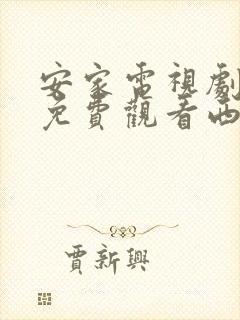 安家電視劇
免費觀看西
賈新興